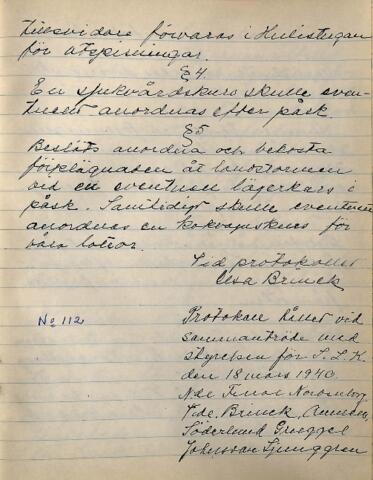 tillsvidare förvaras i Hulistugan
för utspisningar.
§ 4.
En sjukvårdskurs skulle even-
tuellt anordnas efter påsk.
§ 5
Beslöts anordna och bekosta
förplägnaden åt landstormen
vid en eventuell lägerkurs i
påsk. Samtidigt skulle eventuellt
anordnas en kokvagnskurs för
våra lottor.
Vid protokollet
Elsa Brinck
No 112
Protokoll hållet vid
sammanträde med
styrelsen för S. L. K.
den 18 mars 1940
Nordenborg
Brinck,
Söderlund
Johnsson Ljunggren